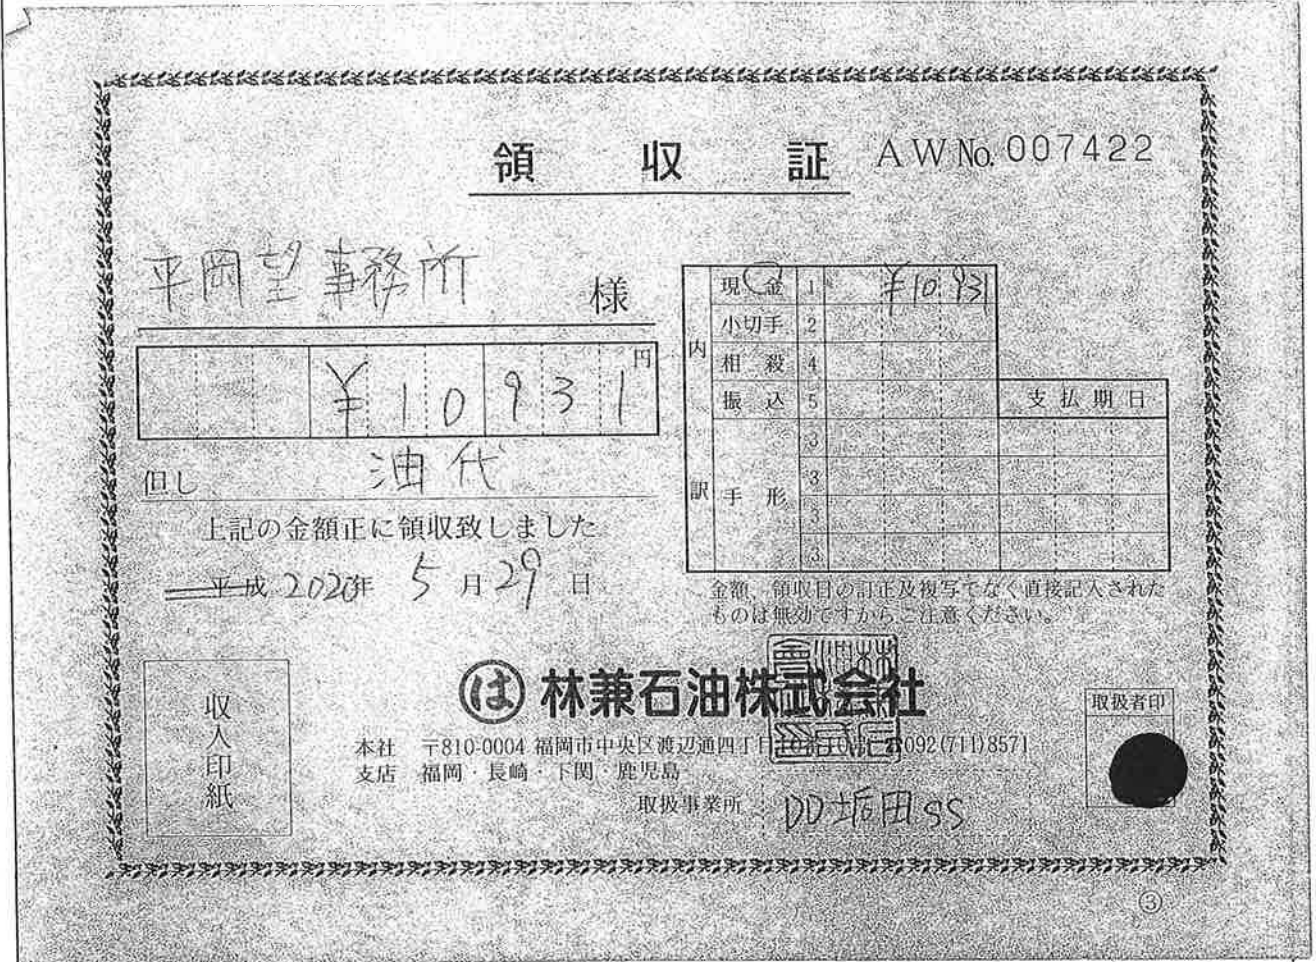 領収証 AW No. 007422
平岡望事務所 様
¥10931円
但し 油代
上記の金額正に領収致しました
平成 2020年 5月29日
内訳
現金 1 ¥10931
小切手 2
相殺 4
振込 5 支払期日
手形 3
3
3
3
金額、領収日の訂正及複写でなく直接記入された
ものは無効ですからご注意ください。
収入印紙
は 林兼石油株式会社
取扱者印
本社 〒810-0004 福岡市中央区渡辺通四丁目10番10号 ☎092(711)8571
支店 福岡・長崎・下関・鹿児島
取扱事業所 DD垢田SS
③